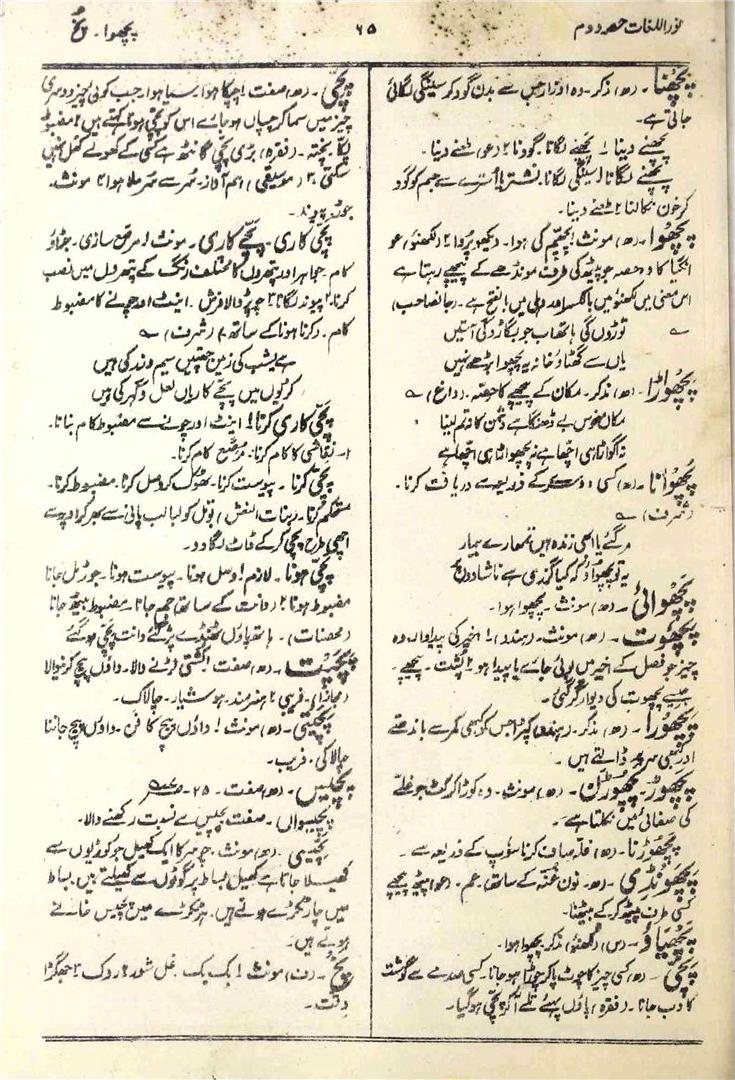 نور اللغات حصہ دوم
۶۵
پچھوا۔ پخ
پچھنا۔ (ھ) مذکر۔ وہ اوزار جس سے بدن گود کر سینگی لگائی
جاتی ہے۔
پچھنے دینا ۱ پچھنے لگانا۔ گودنا ۲ (عو) طعنے دینا۔
پچھنے لگانا ۱ سینگی لگانا۔ نشتر یا استرے سے جسم کو گود
کر خون نکالنا ۲ طعنے دینا۔
پچھوا۔ (ھ) مونث ۱ پچھم کی ہوا۔ دیکھو پروا ۲ (لکھنؤ) عو
انگیا کا وہ حصہ جو پیٹھ کی طرف مونڈھے کے پیچھے رہتا ہے
اس معنی میں لکھنؤ میں بالکسر اور دہلی میں بالفتح ہے۔ (جانصاحب)
؎
توڑوں گی ہاتھ اب جو بگاڑو گی آستیں
یاں سے گھٹاؤ خانہ یہ پچھوا بڑھے نہیں
پچھواڑا۔ (ھ) مذکر۔ مکان کے پیچھے کا حصہ۔ (داغ) ؎
مکان خوس بے ڈھنگا ہے دشمن کا نہ تم لینا
نہ اگواڑا ہی اچھا ہے نہ پچھواڑا ہی اچھا ہے
پچھوانا۔ (ھ) کسی دوسرے کے ذریعہ سے دریافت کرنا۔
(شرف) ؎
مر گئے یا ابھی زندہ ہیں تمھارے بیمار
یہ تو پچھواؤ کہ کیا گذری ہے ناشادوں پر
پچھوائی۔ (ھ) مونث۔ پچھوا ہوا۔
پچھوت۔ (ھ) مونث۔ (ہندو) ۱ اخیر کی پیداوار۔ وہ
چیز جو فصل کے اخیر میں بوئی جائے یا پیدا ہو ۲ پشت۔ پیچھے۔
جیسے پچھوت کی دیوار گر گئی۔
پچھورا۔ (ھ) مذکر۔ (ہندو) کپڑا جس کو کبھی کمر سے باندھتے
اور کبھی سر پر ڈالتے ہیں۔
پچھوڑ۔ پچھوڑن۔ (ھ) مونث۔ وہ کوڑا کرکٹ جو غلے
کی صفائی میں نکلتا ہے۔
پچھوڑنا۔ (ھ) غلہ صاف کرنا سوپ کے ذریعہ سے۔
پچھونڈی۔ (ھ۔ نون غنہ کے ساتھ) عم۔ (عو) پیٹھ پیچھے
کسی طرف پیٹھ کر کے بیٹھنا۔
پچھیاؤ۔ (س) (لکھنؤ) مذکر۔ پچھوا ہوا۔
پچی۔ (ھ) کسی چیز کا چوٹ پا کر چوڑا ہو جانا۔ کسی صدمے سے گوشت
کا دب جانا۔ (فقرہ) پاؤں پہئے تلے آ کر پچی ہو گیا۔
پچی۔ (ھ) صفت ۱ چپکا ہوا۔ سمایا ہوا۔ جب کوئی چیز دوسری
چیز میں سما کر چسپاں ہو جائے اس کو پچی ہونا کہتے ہیں ۲ مضبوط
پکا۔ پختہ۔ (فقرہ) بڑی پچی گانٹھ ہے کسی کے کھولے کھل نہیں
سکتی ۳ (موسیقی) ہم آواز۔ سُر سے سُر ملا ہوا ۴ مونث۔
جوڑ۔ پیوند۔
پچی کاری۔ پچے کاری۔ مونث ۱ مرصع سازی۔ جڑاؤ
کام۔ جواہر اور پتھروں کا مختلف رنگ کے پتھروں میں نصب
کرنا ۲ پیوند لگانا ۳ چوپڑ والا فرش۔ اینٹ اور چونے کا مضبوط
کام۔ (کرنا ہونا کے ساتھ) (شرف) ؎
ہے یشب کی زمین چھتیں سیم و زر کی ہیں
کڑیوں میں پچے کاریاں لعل و گہر کی ہیں
پچی کاری کرنا ۱ اینٹ اور چونے سے مضبوط کام بنانا۔
۲۔ نقاشی کا کام کرنا۔ مرصع کام کرنا۔
پچی کرنا۔ پیوست کرنا۔ ٹھوک کر وصل کرنا۔ مضبوط کرنا۔
مستحکم کرنا۔ (بنات النعش) بوتل کو لبا لب پانی سے بھر کر اوپر سے
اچھی طرح پچی کر کے ڈاٹ لگا دو۔
پچی ہونا۔ لازم ۱ وصل ہونا۔ پیوست ہونا۔ جوڑ مل جانا
مضبوط ہونا ۲ (دانت کے ساتھ) جم جانا۔ مضبوط بیٹھ جانا
(محصنات)۔ ہاتھ پاؤں ٹھنڈے پڑ گئے دانت پچی ہو گئے
پچیت۔ (ھ) صفت ۱ کُشتی لڑنے والا۔ داؤں پیچ کرنے والا
(مجازاً)۔ فریبی ۲ ہنرمند۔ ہوشیار۔ چالاک۔
پچیتی۔ (ھ) مونث ۱ داؤں پیچ کا فن۔ داؤں پیچ جاننا
چالاکی۔ فریب۔
پچیس۔ (ھ) صفت۔ ۲۵۔
پچیسواں۔ صفت۔ پچیس سے نسبت رکھنے والا۔
پچیسی۔ (ھ) مونث۔ چوسر کا ایک کھیل جو کوڑیوں سے
کھیلا جاتا ہے کھیل بساط پر گوٹوں سے کھیلتے ہیں۔ بساط
میں چار ٹکڑے ہوتے ہیں۔ ہر ٹکڑے میں پچیس خانے
ہوتے ہیں۔
پخ۔ (ف) مونث ۱ بک بک۔ غل شور ۲ روک ۳ جھگڑا
دقت۔